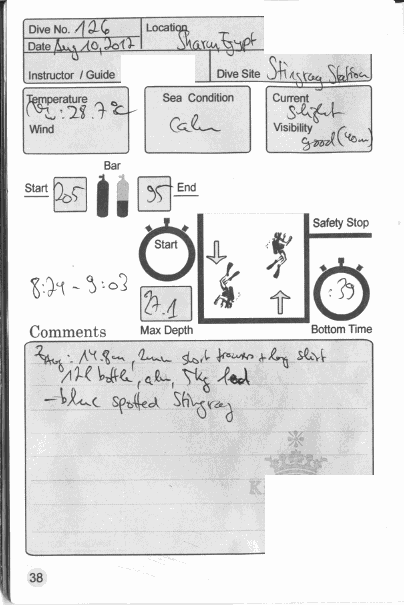 Dive No. 126
Location Sharm Egypt
Date Aug 10, 2012
Instructor / Guide
Dive Site Stingray Station
Temperature
: 28.7°C
Wind
Sea Condition
Calm
Current
slight
Visibility
good (40m)
Bar
Start 205
95 End
Start
Safety Stop
8:24 - 9:03
27.1
Max Depth
:39
Bottom Time
Comments
Avg: 14.8m, 2mm short trousers + long shirt
12l bottle, alu, 5kg lead
- blue spotted Stingray
K
38